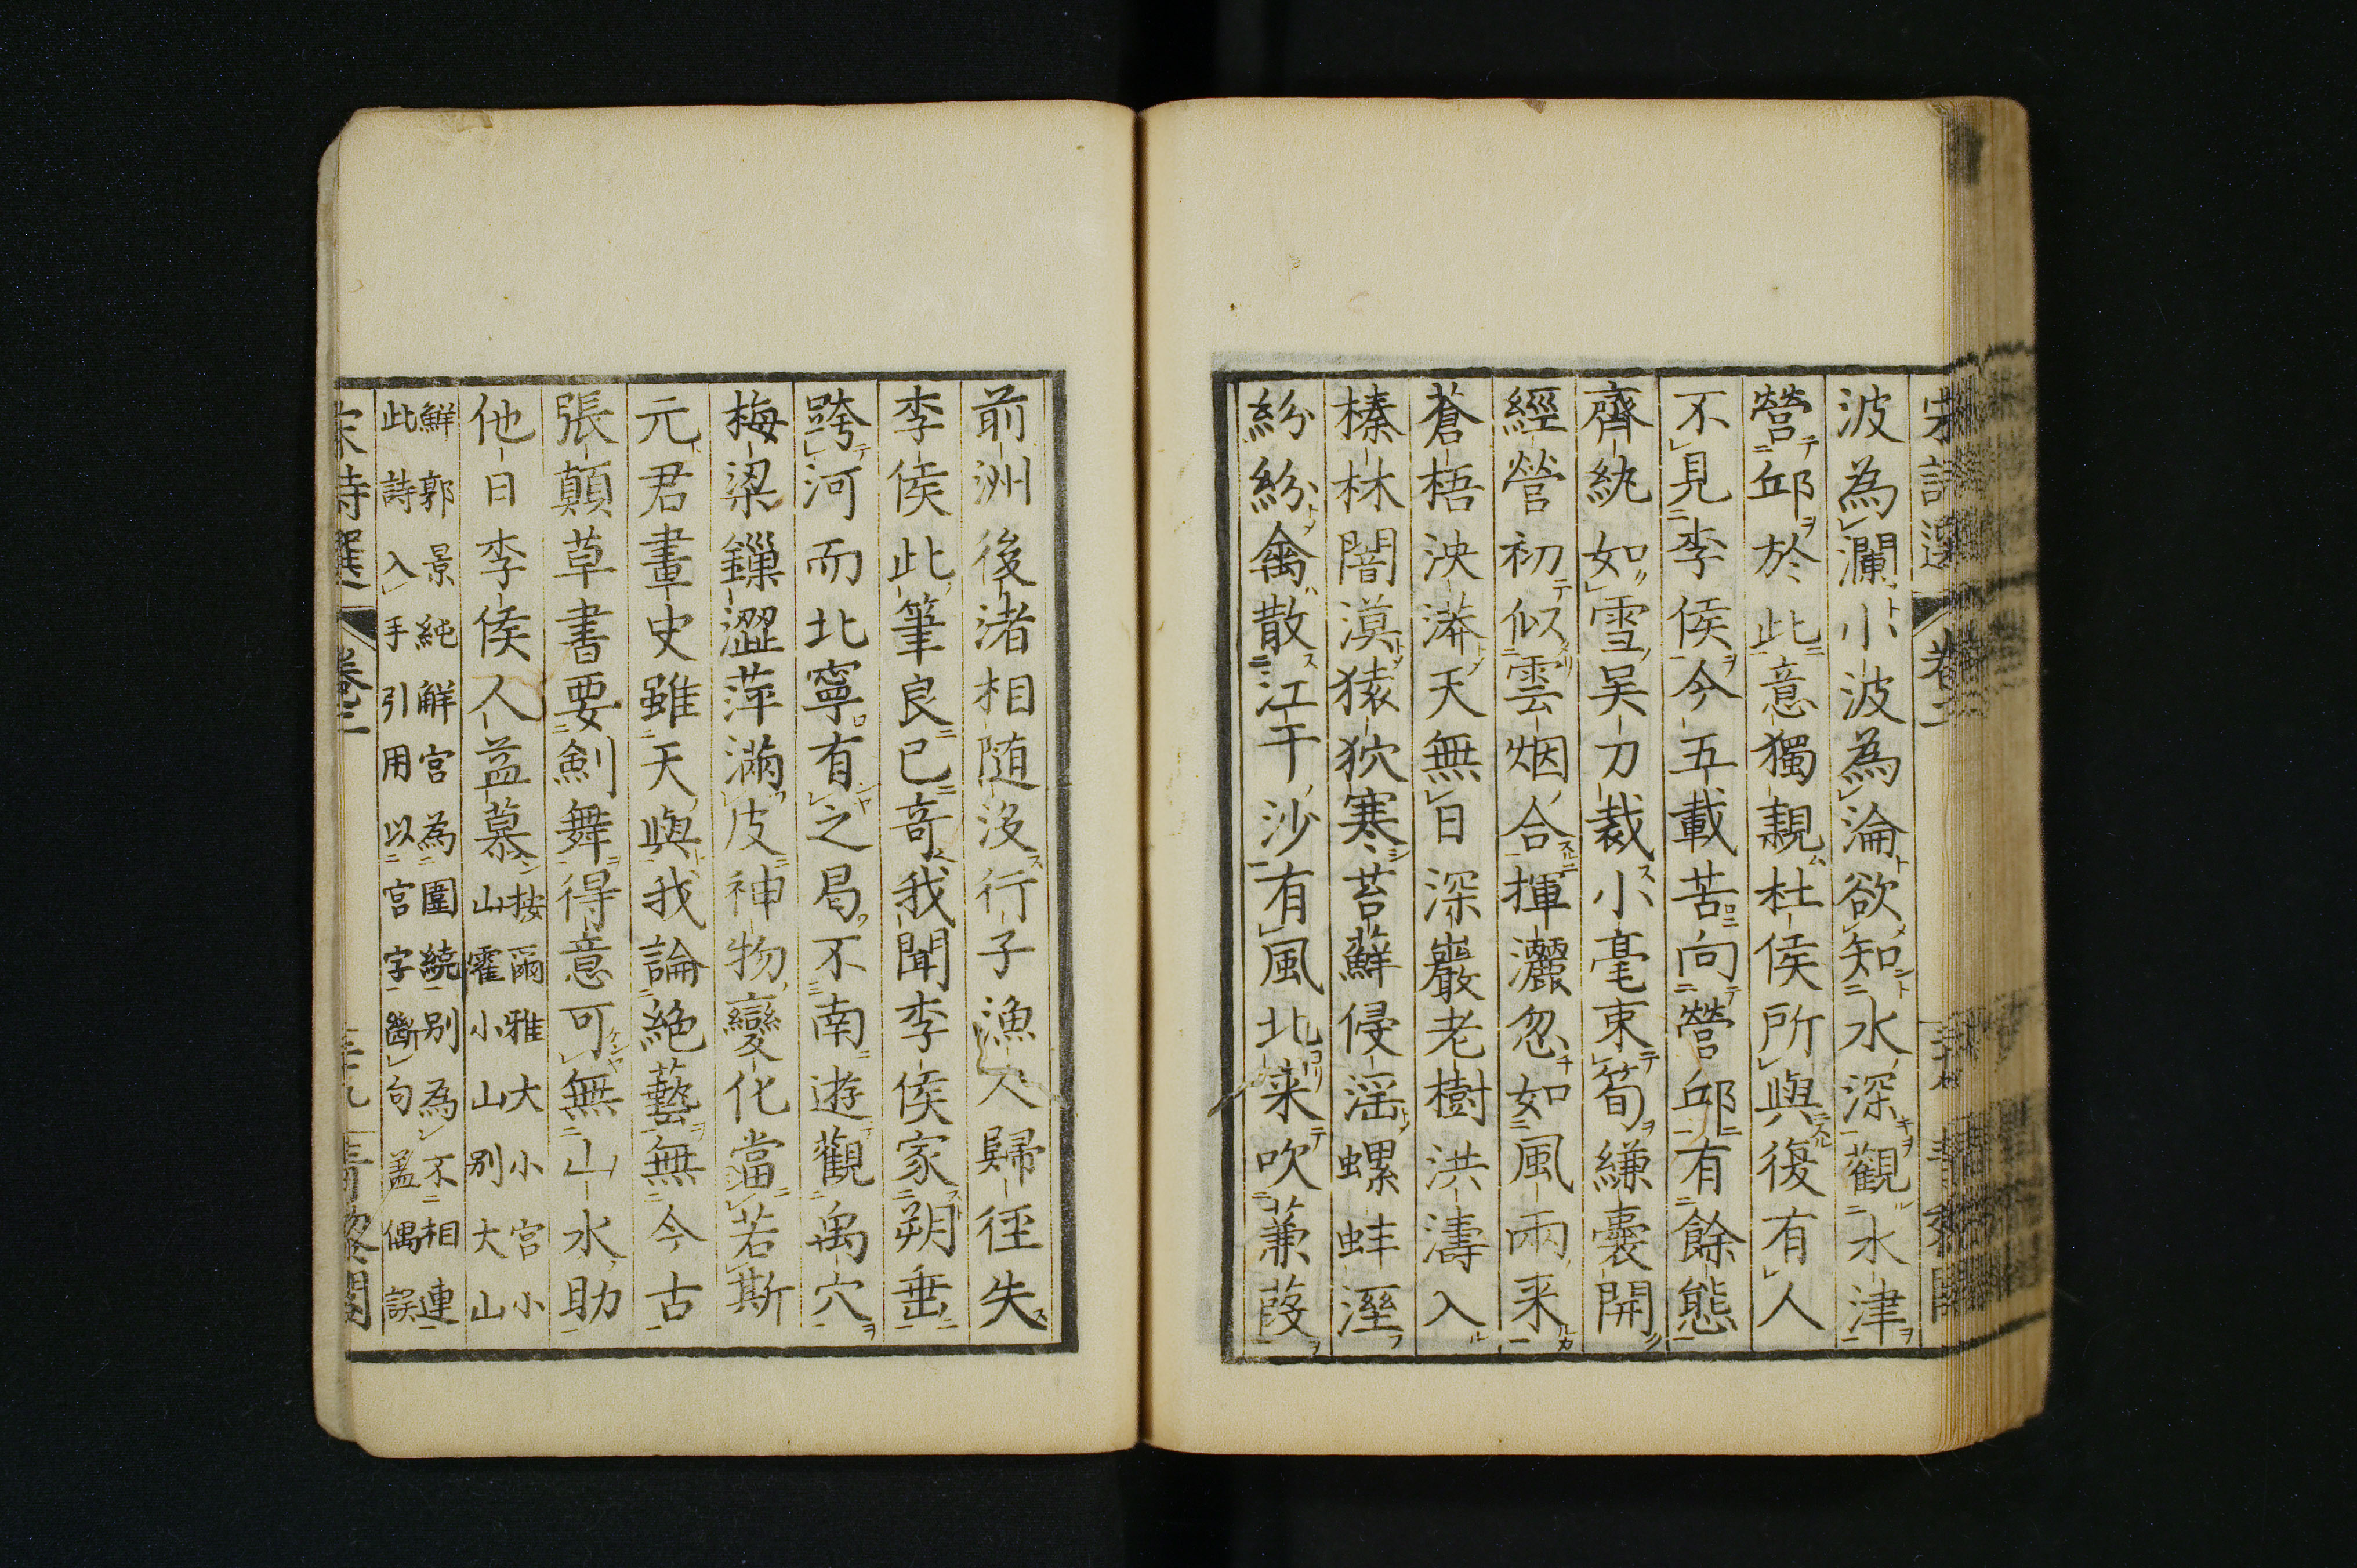 宋詩選 卷二
波為瀾小波為淪欲知水深觀水津
營邱於此意獨親杜侯所與復有人
不見李侯今五載苦向營邱有餘態
齊紈如雪吴刀裁小毫束筍縑囊開
經營初似雲烟合揮灑忽如風雨来
蒼梧泱漭天無日深巖老樹洪濤入
榛林闇漠猿狖寒苔蘚侵淫螺蚌溼
紛紛禽散江干沙有風北来吹蒹葭
前洲後渚相随没行子漁人歸徑失
李侯此筆良已竒我聞李侯家朔垂
跨河而北寧有之曷不南遊觀禹穴
梅梁鏁澀萍滿皮神物變化當若斯
元君畫史雖天與我論絶藝無今古
張顛草書要劍舞得意可無山水助
他日李侯人益慕按爾雅大小宫小
山霍小山别大山
鮮郭景純解宫為圍繞别為不相連
此詩入手引用以宫字斷句盖偶誤
宋詩選 卷二 青黎閣